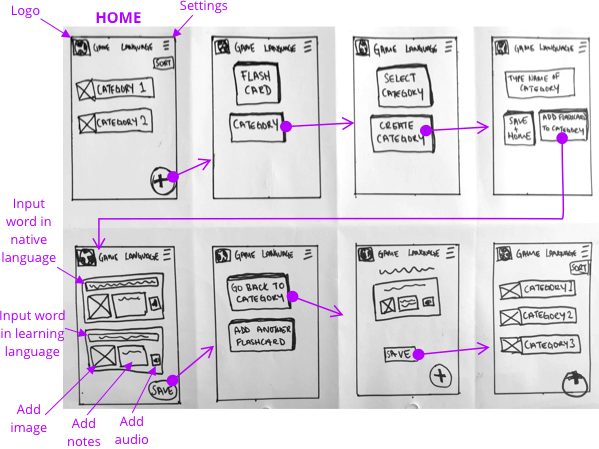 Logo
HOME
Settings
GAME LANGUAGE
SORT
CATEGORY 1
CATEGORY 2
+
GAME LANGUAGE
FLASH
CARD
CATEGORY
GAME LANGUAGE
SELECT
CATEGORY
CREATE
CATEGORY
GAME LANGUAGE
TYPE NAME OF
CATEGORY
SAVE
+
HOME
ADD FLASHCARD
TO CATEGORY
Input
word in
native
language
Input word
in learning
language
Add
image
Add
notes
Add
audio
GAME LANGUAGE
SAVE
GAME LANGUAGE
GO BACK TO
CATEGORY
ADD ANOTHER
FLASHCARD
GAME LANGUAGE
SAVE
+
GAME LANGUAGE
SORT
CATEGORY 1
CATEGORY 2
CATEGORY 3
+